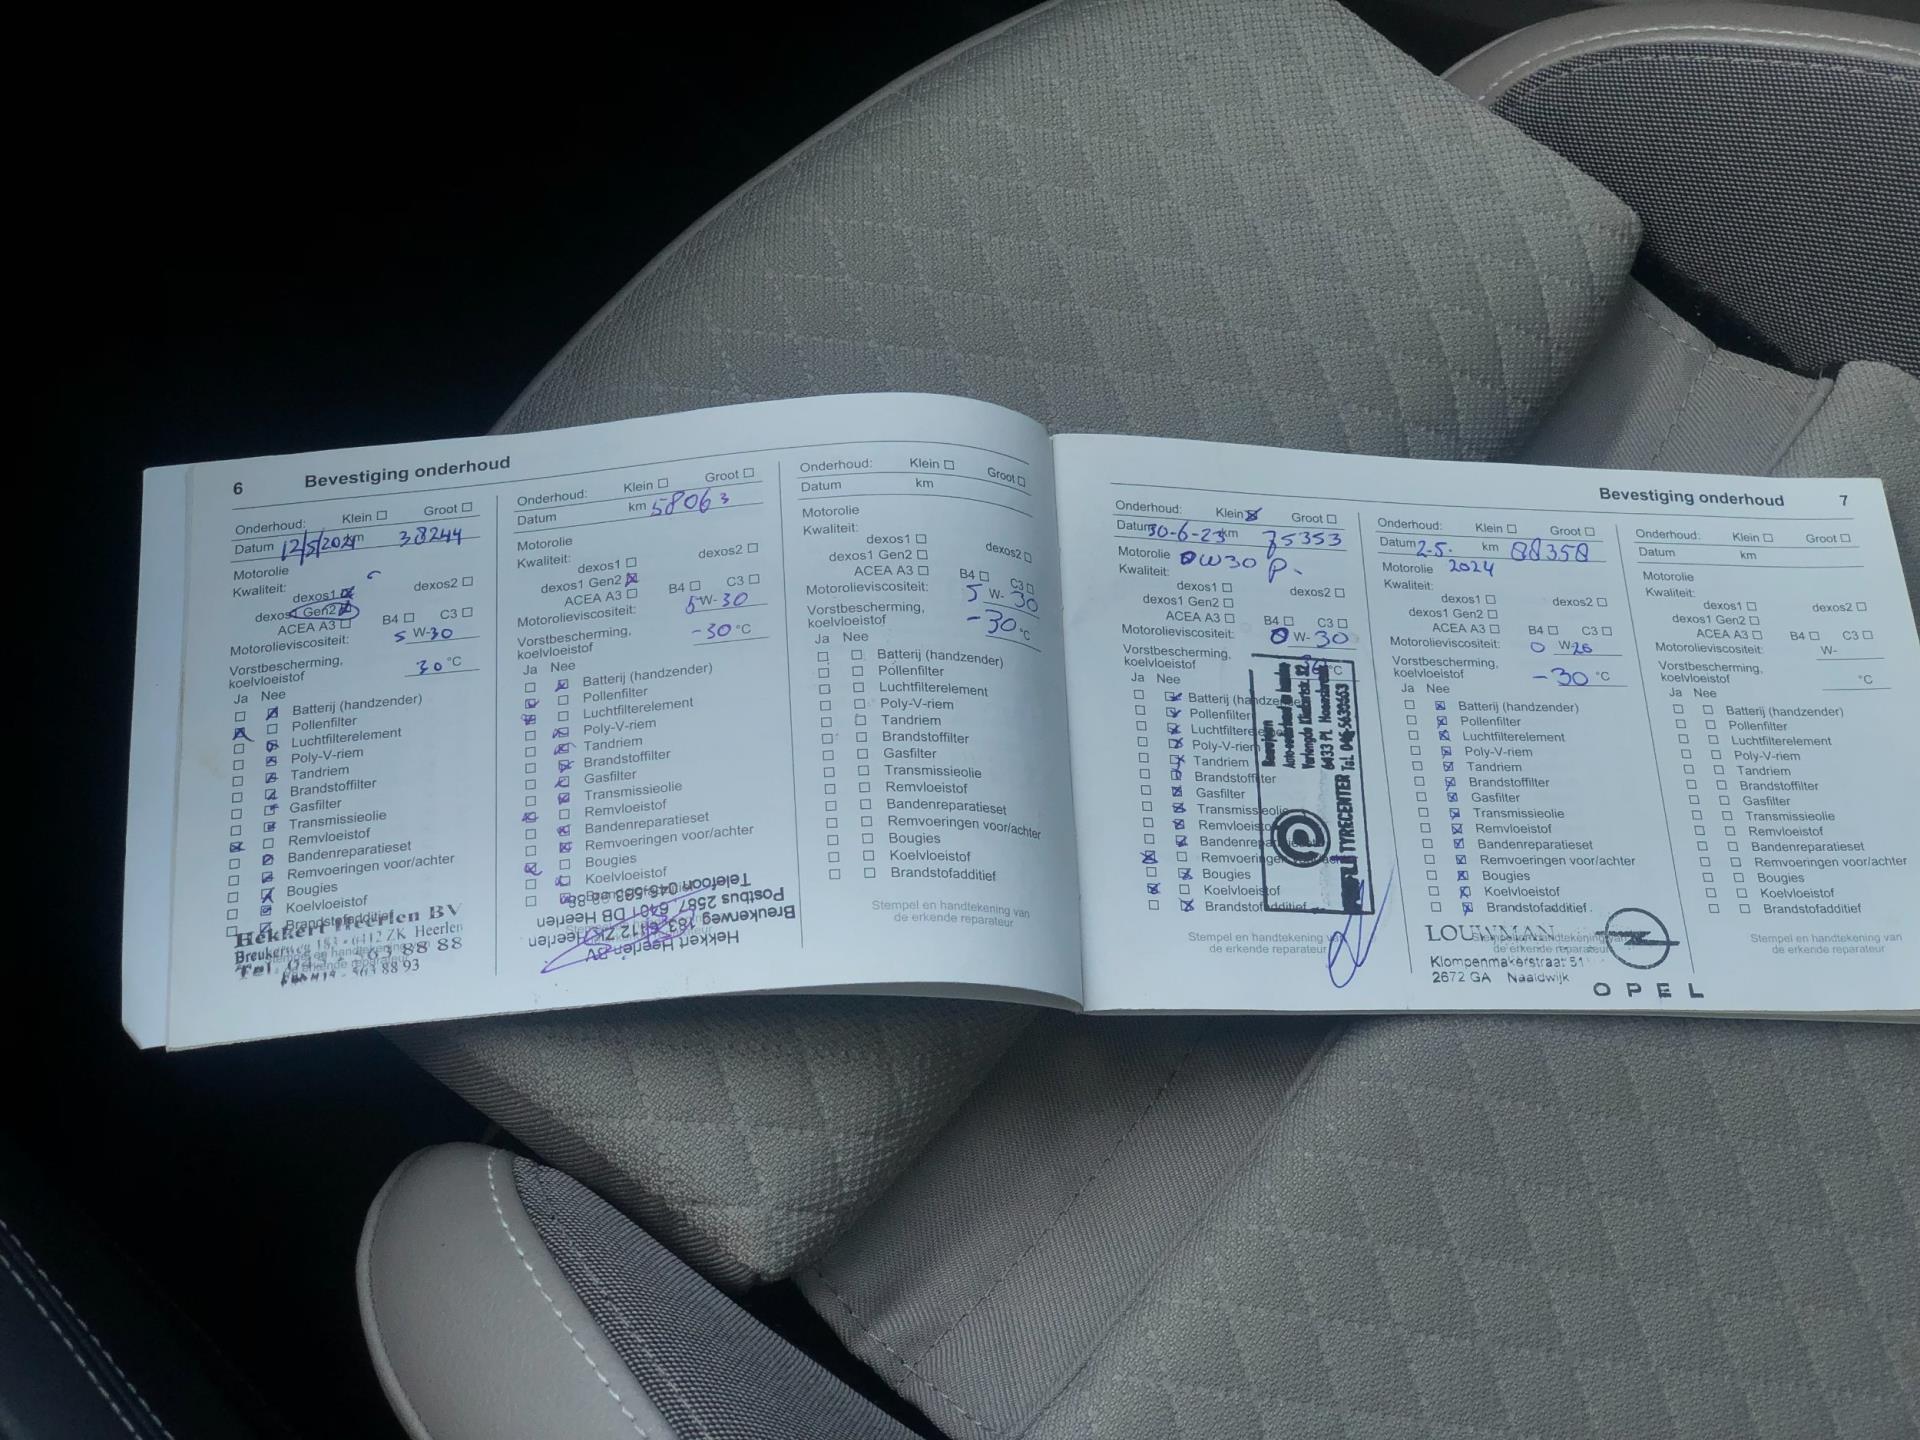 6 Bevestiging onderhoud
Onderhoud: Klein Groot
Datum 12/5/2021 km 38244
Motorolie
Kwaliteit:
dexos1 dexos2
dexos1 Gen2
ACEA A3 B4 C3
Motorolieviscositeit: 5 W-30
Vorstbescherming,
koelvloeistof 30 °C
Ja Nee
Batterij (handzender)
Pollenfilter
Luchtfilterelement
Poly-V-riem
Tandriem
Brandstoffilter
Gasfilter
Transmissieolie
Remvloeistof
Bandenreparatieset
Remvoeringen voor/achter
Bougies
Koelvloeistof
Brandstofadditief
Hekkert Heerlen BV
Breukerweg 183 - 6412 ZK Heerlen
Onderhoud: Klein Groot
Datum km 58063
Motorolie
Kwaliteit:
dexos1 dexos2
dexos1 Gen2
ACEA A3 B4 C3
Motorolieviscositeit: 5W-30
Vorstbescherming,
koelvloeistof -30 °C
Ja Nee
Batterij (handzender)
Pollenfilter
Luchtfilterelement
Poly-V-riem
Tandriem
Brandstoffilter
Gasfilter
Transmissieolie
Remvloeistof
Bandenreparatieset
Remvoeringen voor/achter
Bougies
Koelvloeistof
Hekkert Heerlen BV
Breukerweg 183 6412 ZK Heerlen
Postbus 2587 6401 DB Heerlen
Telefoon
Onderhoud: Klein Groot
Datum km
Motorolie
Kwaliteit:
dexos1 dexos2
dexos1 Gen2
ACEA A3 B4 C3
Motorolieviscositeit: 5 W- 30
Vorstbescherming,
koelvloeistof -30 °C
Ja Nee
Batterij (handzender)
Pollenfilter
Luchtfilterelement
Poly-V-riem
Tandriem
Brandstoffilter
Gasfilter
Transmissieolie
Remvloeistof
Bandenreparatieset
Remvoeringen voor/achter
Bougies
Koelvloeistof
Brandstofadditief
Stempel en handtekening van
de erkende reparateur
Bevestiging onderhoud 7
Onderhoud: Klein Groot
Datum 30-6-23 km 75353
Motorolie 0W30 p.
Kwaliteit:
dexos1 dexos2
dexos1 Gen2
ACEA A3 B4 C3
Motorolieviscositeit: 0 W-30
Vorstbescherming,
koelvloeistof °C
Ja Nee
Batterij (handzender)
Pollenfilter
Luchtfilterelement
Poly-V-riem
Tandriem
Brandstoffilter
Gasfilter
Transmissieolie
Remvloeistof
Bandenreparatieset
Remvoeringen
Bougies
Koelvloeistof
Brandstofadditief
Stempel en handtekening van
de erkende reparateur
TYRECENTER Tel. 046-5639563
Onderhoud: Klein Groot
Datum 2-5. km 88358
Motorolie 2024
Kwaliteit:
dexos1 dexos2
dexos1 Gen2
ACEA A3 B4 C3
Motorolieviscositeit: 0 W-20
Vorstbescherming,
koelvloeistof -30 °C
Ja Nee
Batterij (handzender)
Pollenfilter
Luchtfilterelement
Poly-V-riem
Tandriem
Brandstoffilter
Gasfilter
Transmissieolie
Remvloeistof
Bandenreparatieset
Remvoeringen voor/achter
Bougies
Koelvloeistof
Brandstofadditief
LOUWMAN
de erkende reparateur
Klompenmakerstraat 51
2672 GA Naaldwijk
OPEL
Onderhoud: Klein Groot
Datum km
Motorolie
Kwaliteit:
dexos1 dexos2
dexos1 Gen2
ACEA A3 B4 C3
Motorolieviscositeit: W-
Vorstbescherming,
koelvloeistof °C
Ja Nee
Batterij (handzender)
Pollenfilter
Luchtfilterelement
Poly-V-riem
Tandriem
Brandstoffilter
Gasfilter
Transmissieolie
Remvloeistof
Bandenreparatieset
Remvoeringen voor/achter
Bougies
Koelvloeistof
Brandstofadditief
Stempel en handtekening van
de erkende reparateur